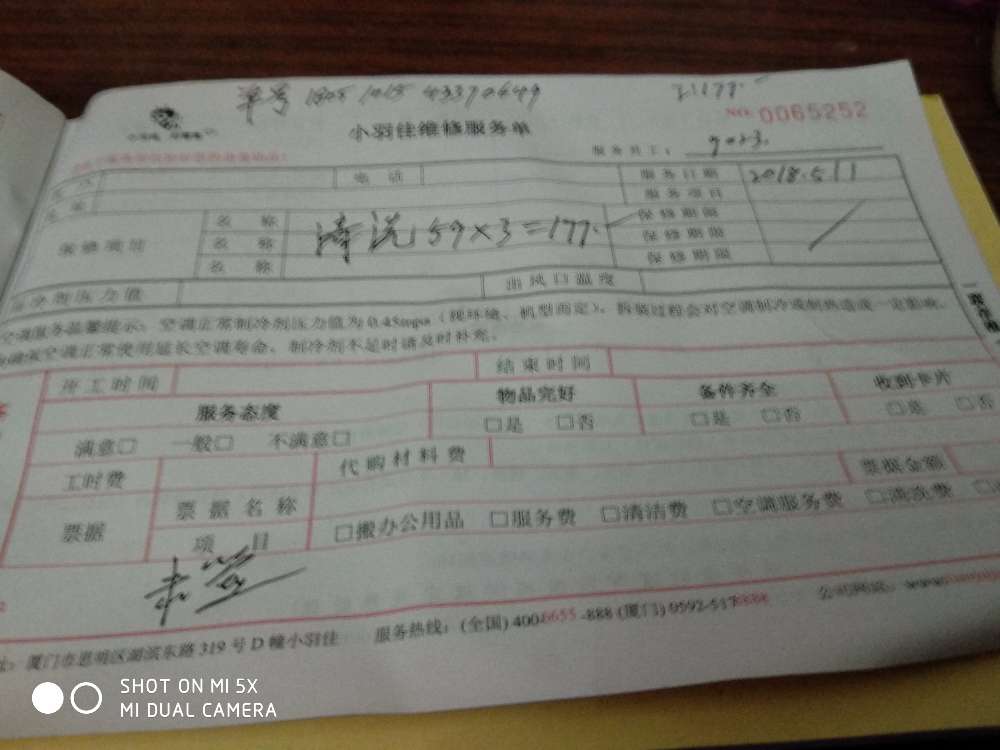 单号
NO. 0065252
小羽佳维修服务单
服务员工: 9023
电话 服务日期 2018.5.11
服务项目
名 称 清洗 59×3=177. 保修期限
装修项目 名 称 保修期限
名 称 保修期限
出风口温度
空调服务温馨提示:空调正常制冷剂压力值为0.45mpa(视环境、机型而定),拆装过程会对空调制冷或制热造成一定影响,
空调正常使用延长空调寿命,制冷剂不足时请及时补充。
开工时间 结束时间
服务态度 物品完好 备件齐全 收到卡片
满意□ 一般□ 不满意□ □是 □否 □是 □否 □是 □否
工时费 代购材料费 票据金额
票据 票据名称 □搬办公用品 □服务费 □清洁费 □空调服务费 □清洗费
项 目
厦门市思明区湖滨东路319号D幢小羽佳 服务热线:(全国)4006655-888(厦门)0592-5178888 公司网站:www.
SHOT ON MI 5X
MI DUAL CAMERA